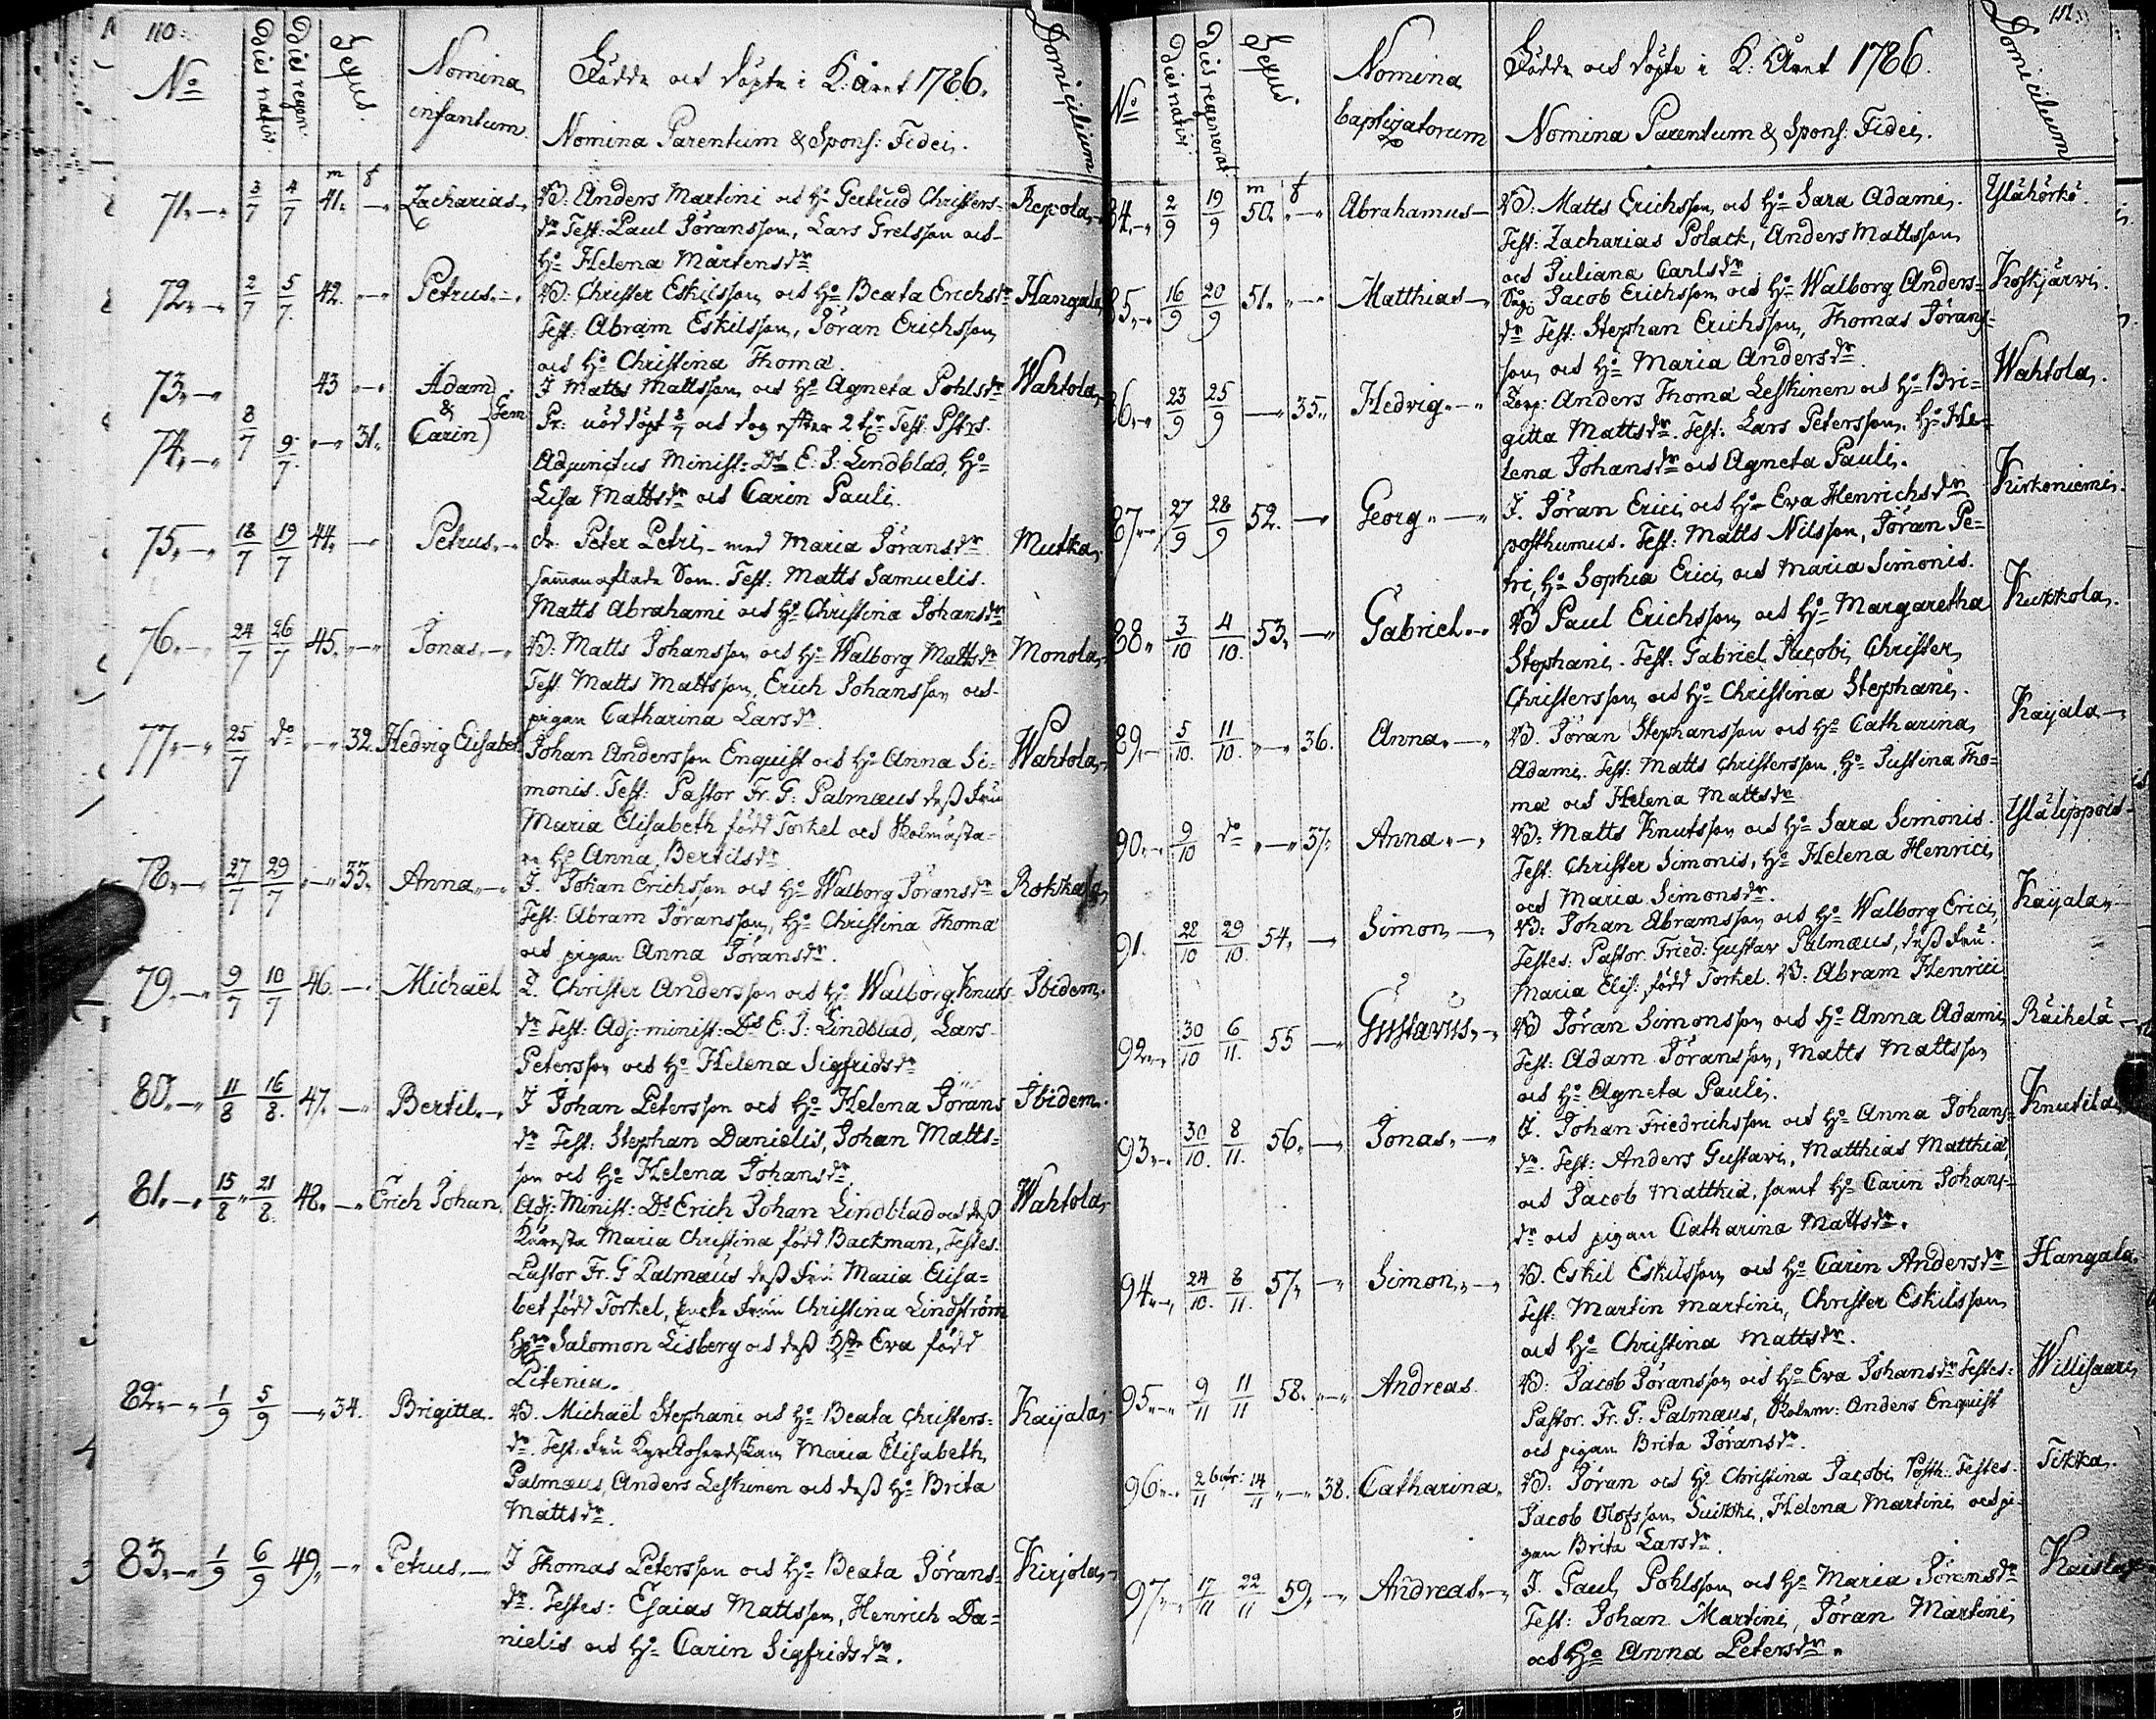 110.
No
Dies nativ.
Dies regen.
Sexus.
Nomina infantum.
Födde och döpte i K: Året 1786.
Nomina Parentum & Spons: Fidei.
Domicilium
m f
71. 3/7 4/7 41. Zacharias B: Anders Martini och Ho Gertrud Christers- Repola
dr Test: Paul Göransson, Lars Grelsson och
Ho Helena Mårtensdr
72. 2/7 5/7 42. Petrus B: Christer Eskilsson och Ho Beata Erichsdr Hangala
Test: Abram Eskilsson, Göran Erichsson
och Ho Christina Thomæ.
73. 43 Adam I Matts Mattsson och Ho Agneta Pohlsdr Wahtola
& Gem 8/7
74. 9/7 31. Carin
Test:
Adjunctus Minist: Ds E: J: Lindblad, Ho
Lisa Mattsdr och Carin Pauli.
75. 18/7 19/7 44. Petrus dr. Peter Petri med Maria Göransdr Mutka
samman aflade Son. Test: Matts Samuelis.
Matts Abrahami och Ho Christina Johansdr
76. 24/7 26/7 45. Jonas B: Matts Johansson och Ho Walborg Mattsdr Monola
Test. Matts Mattsson, Erich Johansson och
pigan Catharina Larsdr
77. 25/7 do 32. Hedvig Elisabet Johan Andersson Enquist och Ho Anna Si- Wahtola
monis. Test: Pastor Fr. G: Palmæus dess Fru
Maria Elisabeth född Torkel och Skolmästa-
re Ho Anna Bertilsdr
78. 27/7 29/7 33. Anna I. Johan Erichsson och Ho Walborg Göransdr Rohkala
Test: Abram Göransson, Ho Christina Thomæ
och pigan Anna Göransdr.
79. 9/7 10/7 46. Michaël I. Christer Andersson och Ho Walborg Knuts- Ibidem.
dr Test: Adj: minist: Ds E: J: Lindblad, Lars
Petersson och Ho Helena Sigfridsdr
80. 11/8 16/8. 47. Bertil I Johan Petersson och Ho Helena Görans Ibidem.
dr Test: Stephan Danielis, Johan Matts-
son och Ho Helena Johansdr.
81. 15/8 21/8. 48. Erich Johan. Adj: Minist: Ds Erich Johan Lindblad och dess Wahtola
Käresta Maria Christina född Backman, Testes.
Pastor Fr. G Palmæus dess Fru Maria Elisa-
bet född Torkel, Enke Frun Christina Lindström
Salomon Lisberg och dess Eva född
Litenia.
82. 1/9 5/9 34. Brigitta. B. Michaël Stephani och Ho Beata Christers- Kaijala
dr. Test: Fru Kyrckoherdskan Maria Elisabeth
Palmæus, Anders Leskinen och dess Ho Brita
Mattsdr.
83. 1/9 6/9 49. Petrus I Thomas Petersson och Ho Beata Görans- Kirjola
dr. Testes: Esaias Mattsson, Henrich Da-
nielis och Ho Carin Sigfridsdr.
No
Dies nativ.
Dies regenerat.
Sexus.
Nomina baptizatorum
Födde och döpte i K: Året 1786.
Nomina Parentum & Spons: Fidei.
Domicilium
m f
84. 2/9 19/9 50. Abrahamus B: Matts Erichsson och Ho Sara Adami. Ylähörkö.
Test: Zacharias Polack, Anders Mattsson
och Juliana Carlsdr
85. 16/9 20/9 51. Matthias Jacob Erichsson och Ho Walborg Anders- Koskjärvi.
dr Test: Stephan Erichsson, Thomas Görans-
son och Ho Maria Andersdr.
86. 23/9 25/9 35. Hedvig Korp: Anders Thomæ Leskinen och Ho Bri- Wahtola.
gitta Mattsdr. Test: Lars Petersson, Ho He-
lena Johansdr och Agneta Pauli.
87. 27/9 28/9 52. Georg I. Göran Erici och Ho Eva Henrichsdr Kirkoniemi
posthumus. Test: Matts Nilsson, Göran Pe-
tri, Ho Sophia Erici och Maria Simonis.
88. 3/10 4/10. 53. Gabriel B Paul Erichsson och Ho Margaretha Kukkola
Stephani. Test: Gabriel Jacobi, Christer
Christersson och Ho Christina Stephani.
89. 5/10. 11/10. 36. Anna B. Göran Stephansson och Ho Catharina Kaijala
Adami. Test: Matts Christersson, Ho Justina Tho-
mæ och Helena Mattsdr
90. 9/10 do 37. Anna B: Matts Knutsson och Ho Sara Simonis. Ylälippois
Test: Christer Simonis, Ho Helena Henrici
och Maria Simonsdr.
91. 28/10 29/10. 54. Simon B: Johan Abramsson och Ho Walborg Erici, Kaijala
Testes: Pastor Fried: Gustav Palmæus, dess Fru
Maria Elis: född Torkel. B: Abram Henrici
92. 30/10 6/11. 55 Gustavus B Göran Simonsson och Ho Anna Adami Räihelä
Test: Adam Göransson, Matts Mattsson
och Ho Agneta Pauli.
93. 30/10. 8/11. 56. Jonas I. Johan Friedrichsson och Ho Anna Johans- Knutila
dr. Test: Anders Gustavi, Matthias Matthiæ
och Jacob Matthiæ, samt Ho Carin Johans-
dr och pigan Catharina Mattsdr.
94. 24/10. 8/11. 57. Simon B. Eskil Eskilsson och Ho Carin Andersdr Hangala
Test: Martin Martini, Christer Eskilsson
och Ho Christina Mattsdr.
95. 9/11 11/11 58. Andreas B: Jacob Göransson och Ho Eva Johansdr Testes: Willisaari
Pastor. Fr. G: Palmæus, Skolem: Anders Enquist
och pigan Brita Göransdr.
96. 2/11 14/11 38. Catharina. B: Göran och Ho Christina Jacobi Posth: Testes Tikka.
Jacob Olofsson Suikki, Helena Martini och pi-
gan Brita Larsdr.
97. 17/11 22/11 59. Andreas I. Paul Pohlsson och Ho Maria Göransdr Kaisla
Test: Johan Martini, Göran Martini
och Ho Anna Petersdr.